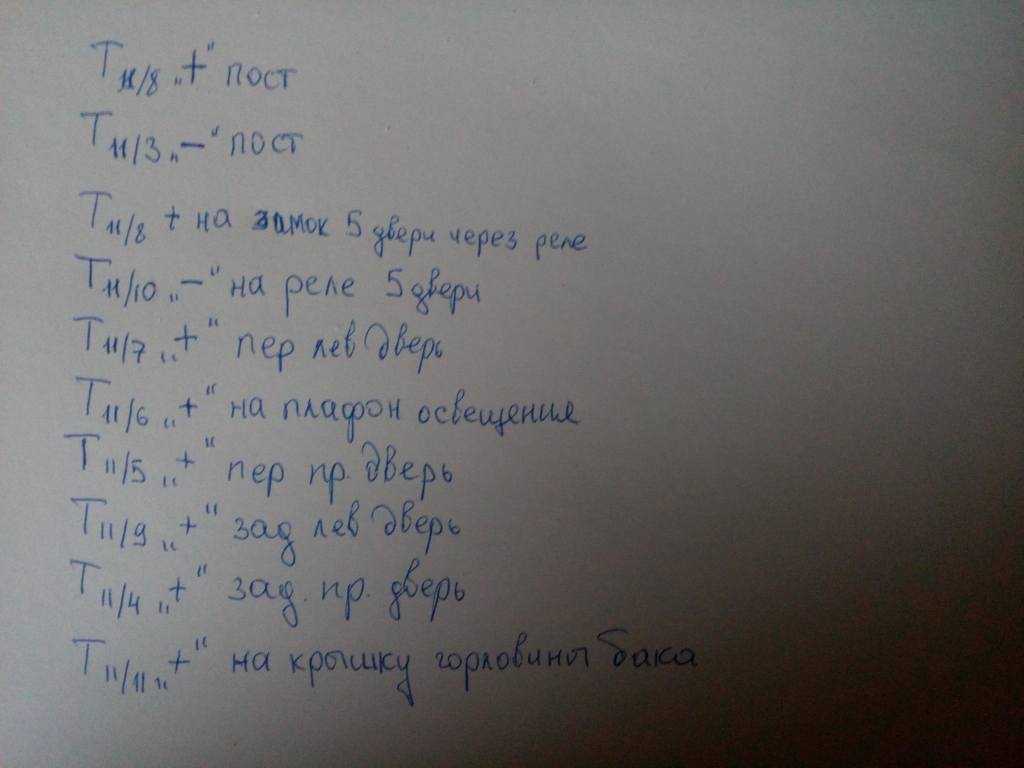 Т11/8 „+“ пост
Т11/3 „–“ пост
Т11/8 + на замок 5 двери через реле
Т11/10 „–“ на реле 5 двери
Т11/7 „+“ пер лев дверь
Т11/6 „+“ на плафон освещения
Т11/5 „+“ пер пр. дверь
Т11/9 „+“ зад лев дверь
Т11/4 „+“ зад. пр. дверь
Т11/11 „+“ на крышку горловины бака